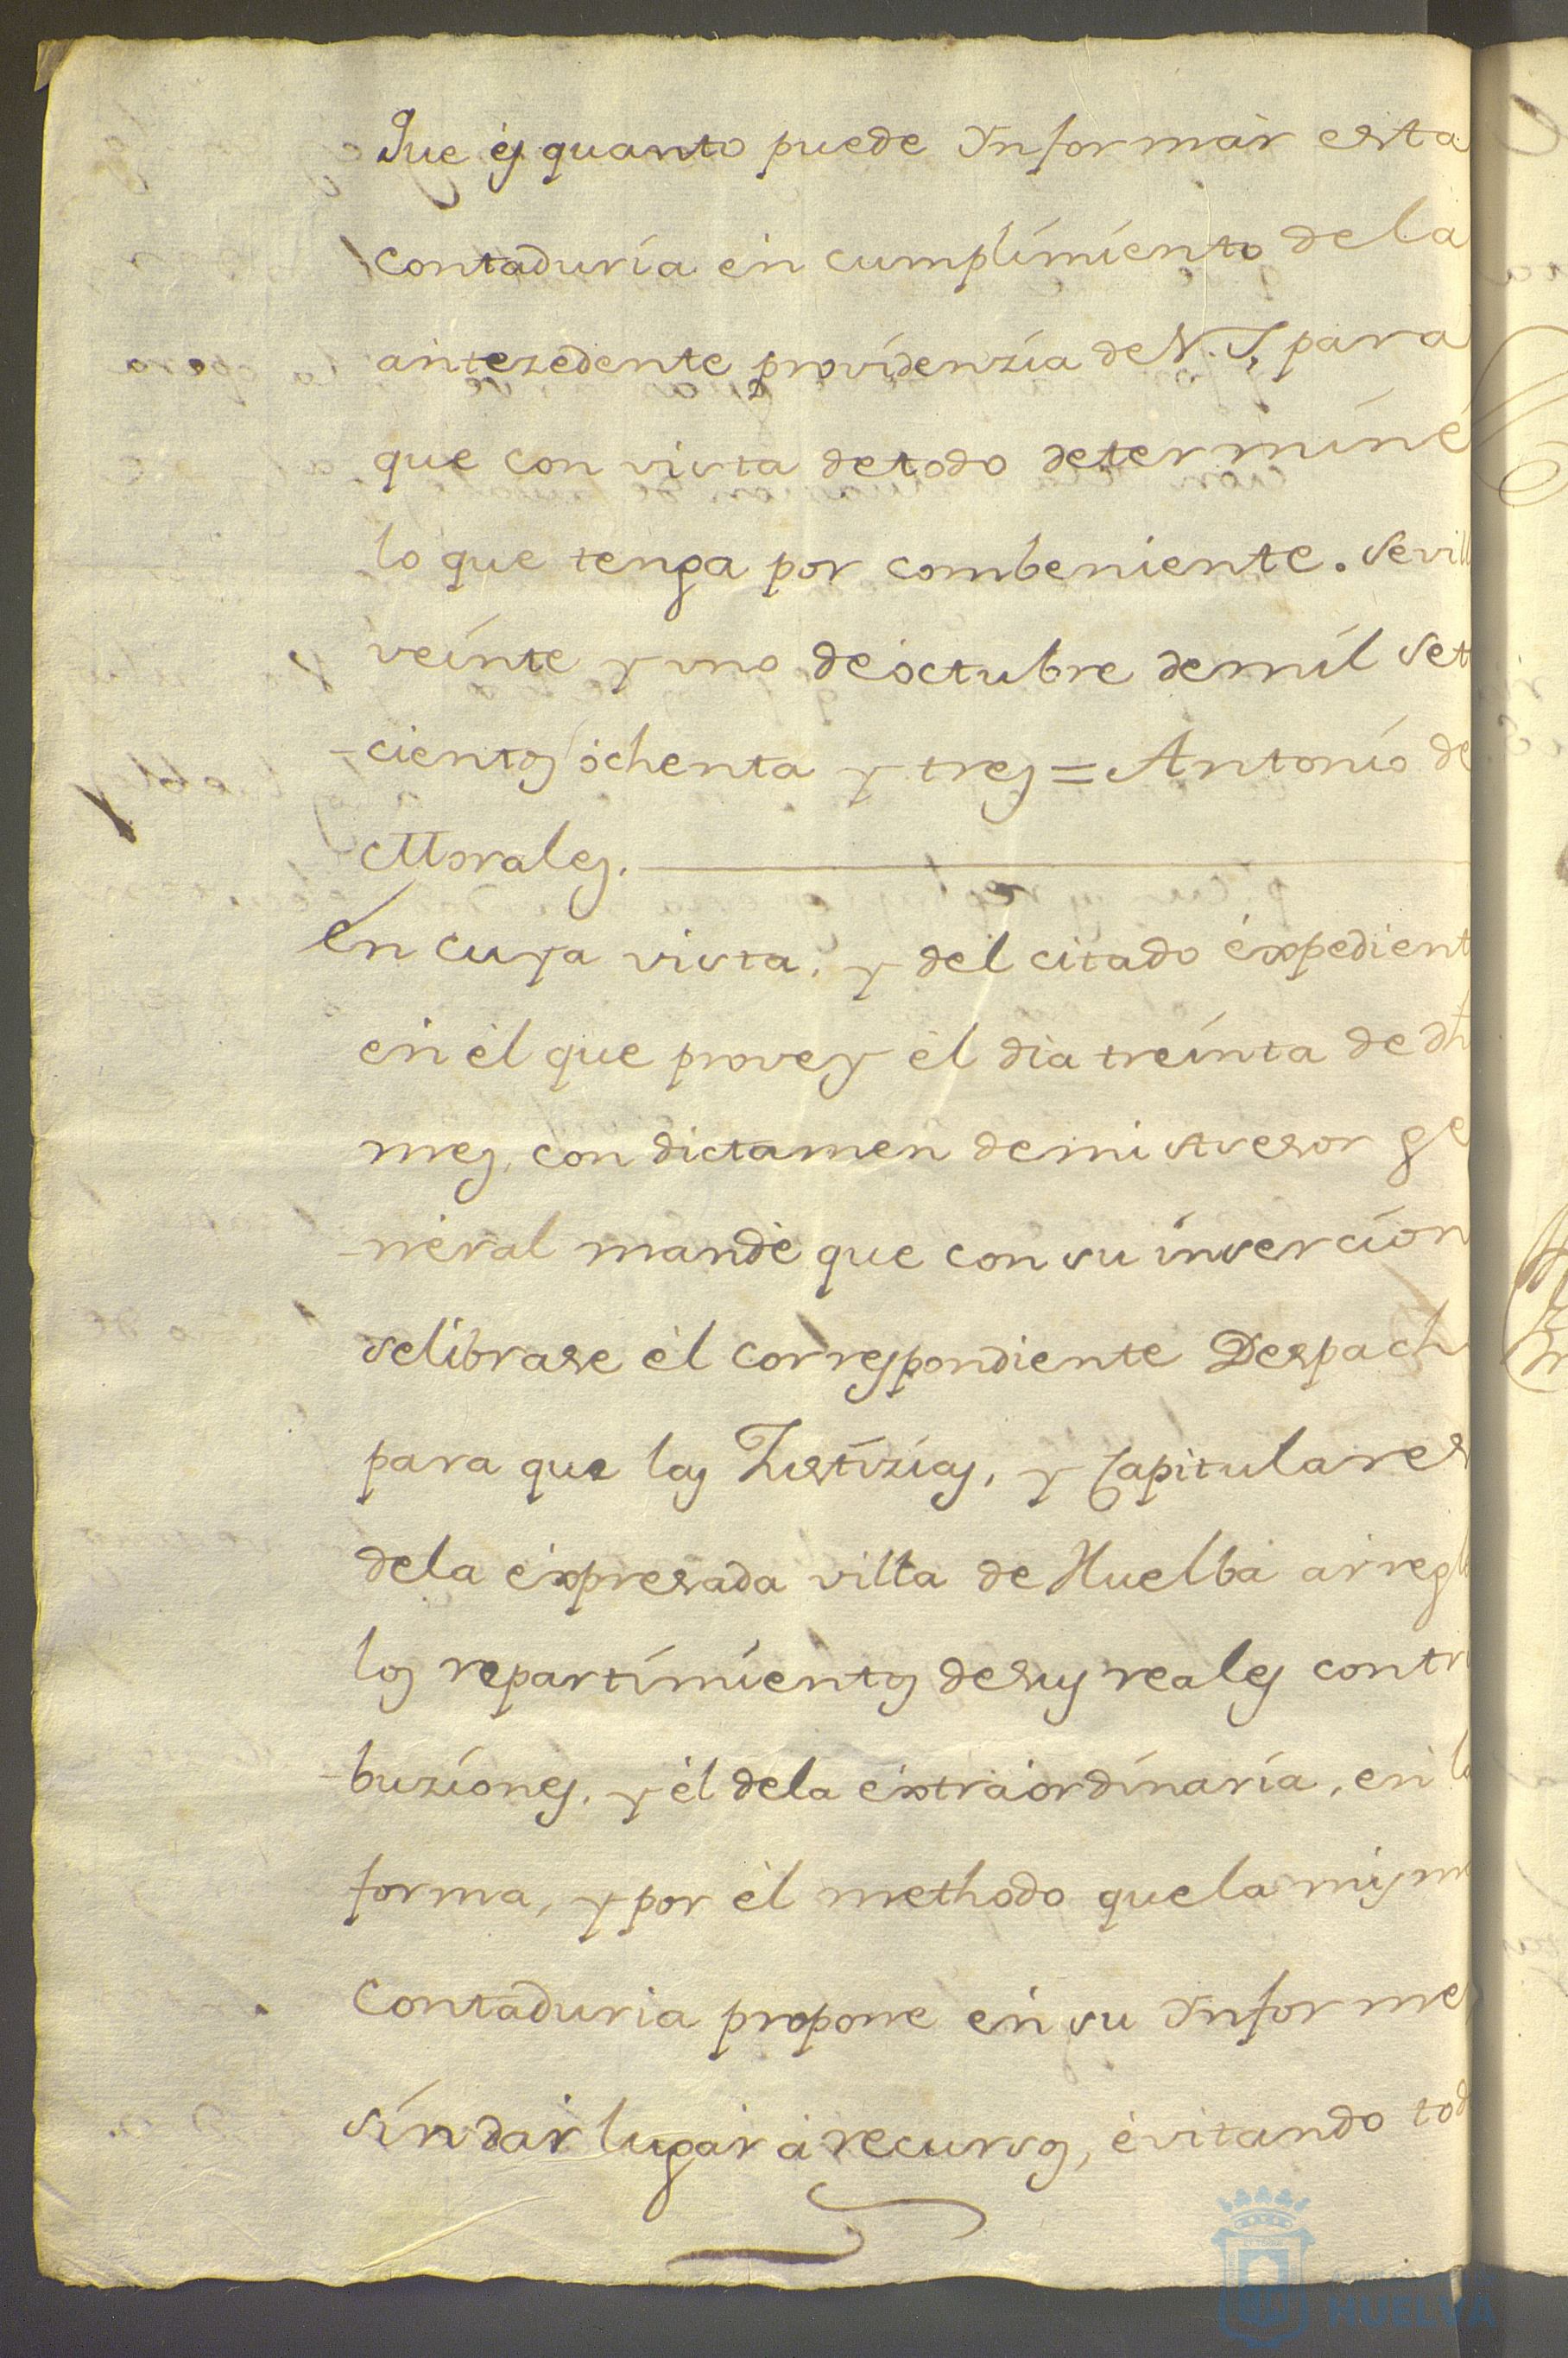 Que es quanto puede Informar esta
contaduría en cumplimiento dela
antezedente providenzia de V. S, para
que con vista detodo determine
lo que tenga por combeniente. Sevill
veinte y uno de octubre demil set
-cientos ochenta y tres = Antonio de
Morales.
En cuya vista, y del citado éxpedient
en él que provey él dia treinta de dh
mes, con dictamen demi Asesor ge
-neral mandé que con su insercion
selibrase él correspondiente Despach
para que las Justizias, y Capitulares
dela éxpresada villa de Huelba arregl
los repartimientos desus reales contri
-buziones, y él dela éxtraordinaria, en l
forma, y por él methodo quela mism
Contaduria propone en su Informe
sindar lugar á recursos, évitando tod
HUELVA